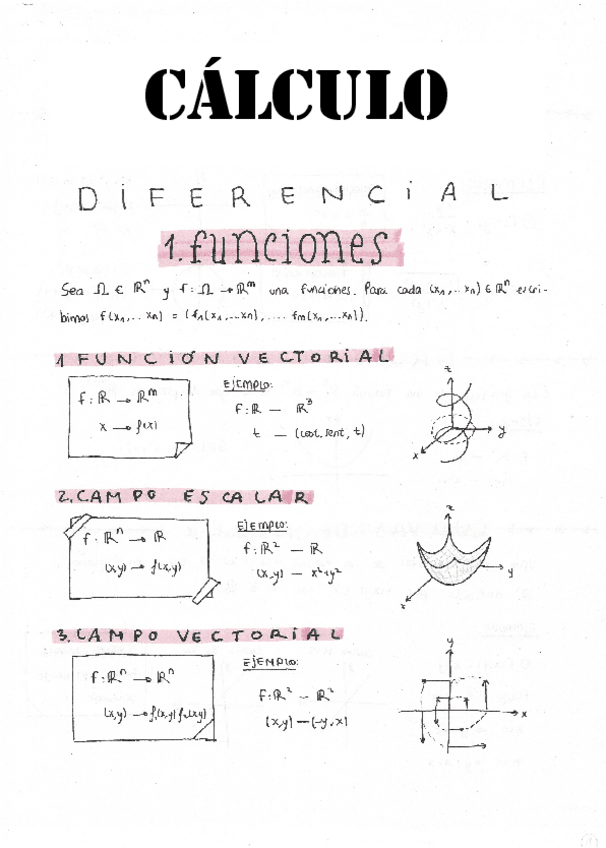 CÁLCULO
DIFERENCIAL
1. funciones
Sea Ω ∈ ℝⁿ y f: Ω → ℝᵐ una funciones. Para cada (x₁,... xₙ) ∈ ℝⁿ escri-
bimos f(x₁,... xₙ) = (f₁(x₁,...xₙ), .... fₘ(x₁,...xₙ)).
1 FUNCIÓN VECTORIAL
f: ℝ → ℝᵐ
x → f(x)
EJEMPLO:
f: ℝ — ℝ³
t — (cost, sent, t)
z
y
x
2. CAMPO ESCALAR
f: ℝⁿ → ℝ
(x,y) → f(x,y)
EJEMPLO:
f: ℝ² — ℝ
(x,y) — x²+y²
z
y
x
3. CAMPO VECTORIAL
f: ℝⁿ → ℝⁿ
(x,y) → f₁(x,y) f₂(x,y)
EJEMPLO:
F: ℝ² — ℝ²
(x,y) — (-y, x)
y
x